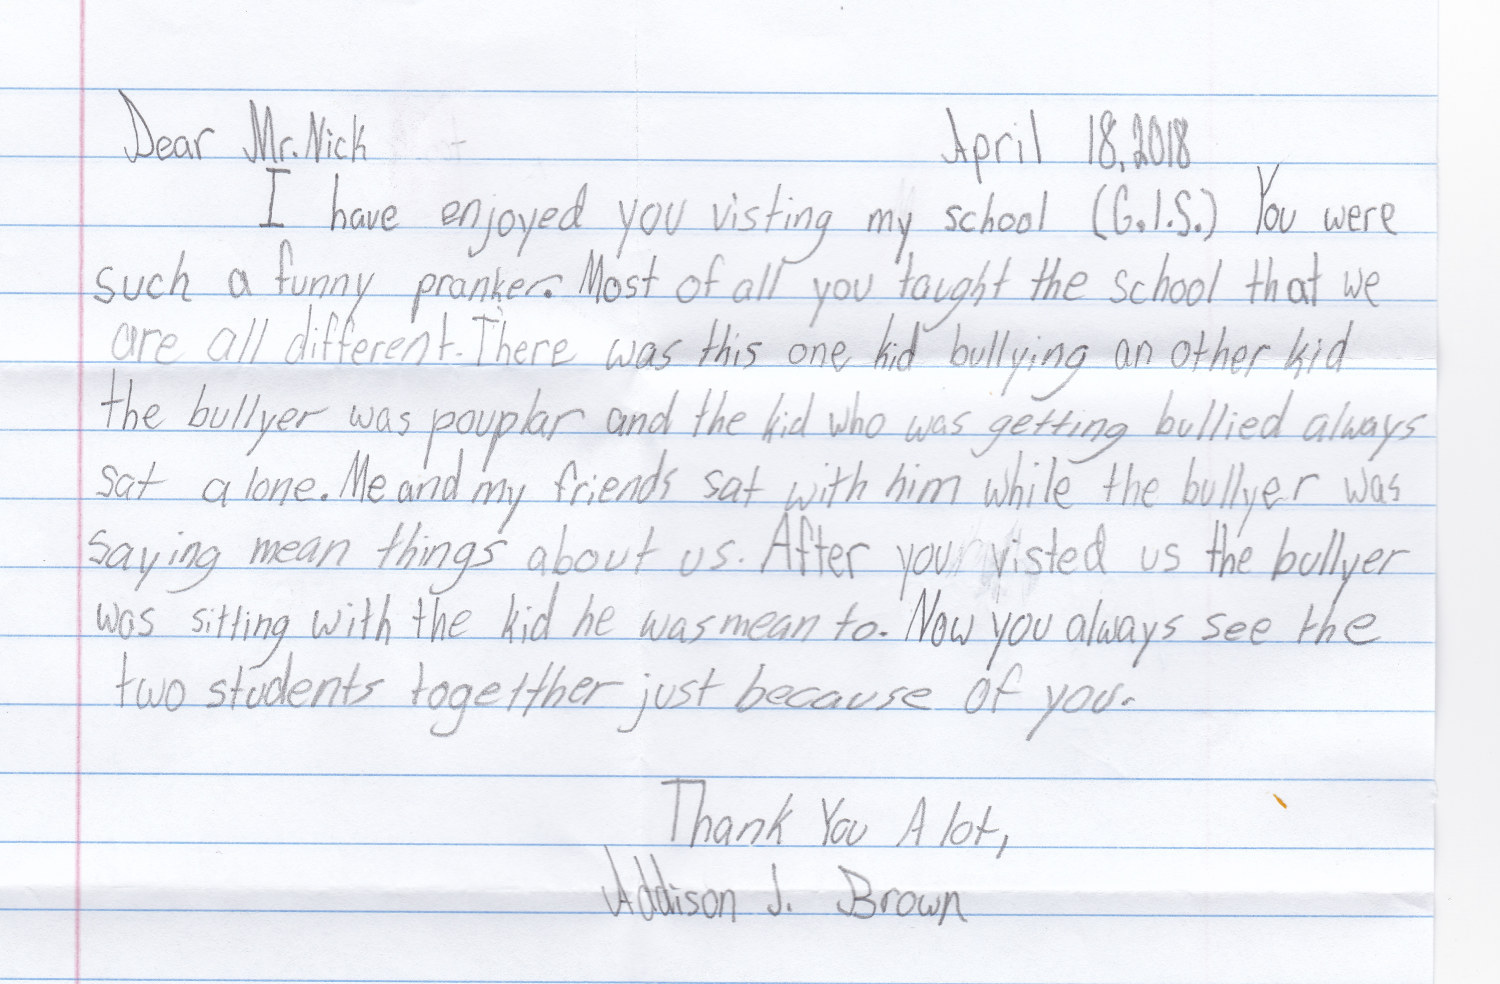 Dear Mr. Nick April 18, 2018
I have enjoyed you visting my school (G.I.S.) You were
such a funny pranker. Most of all you taught the school that we
are all different. There was this one kid bullying an other kid
the bullyer was pouplar and the kid who was getting bullied always
sat alone. Me and my friends sat with him while the bullyer was
saying mean things about us. After you visted us the bullyer
was sitting with the kid he was mean to. Now you always see the
two students togetther just because of you.
Thank You A lot,
Addison J. Brown